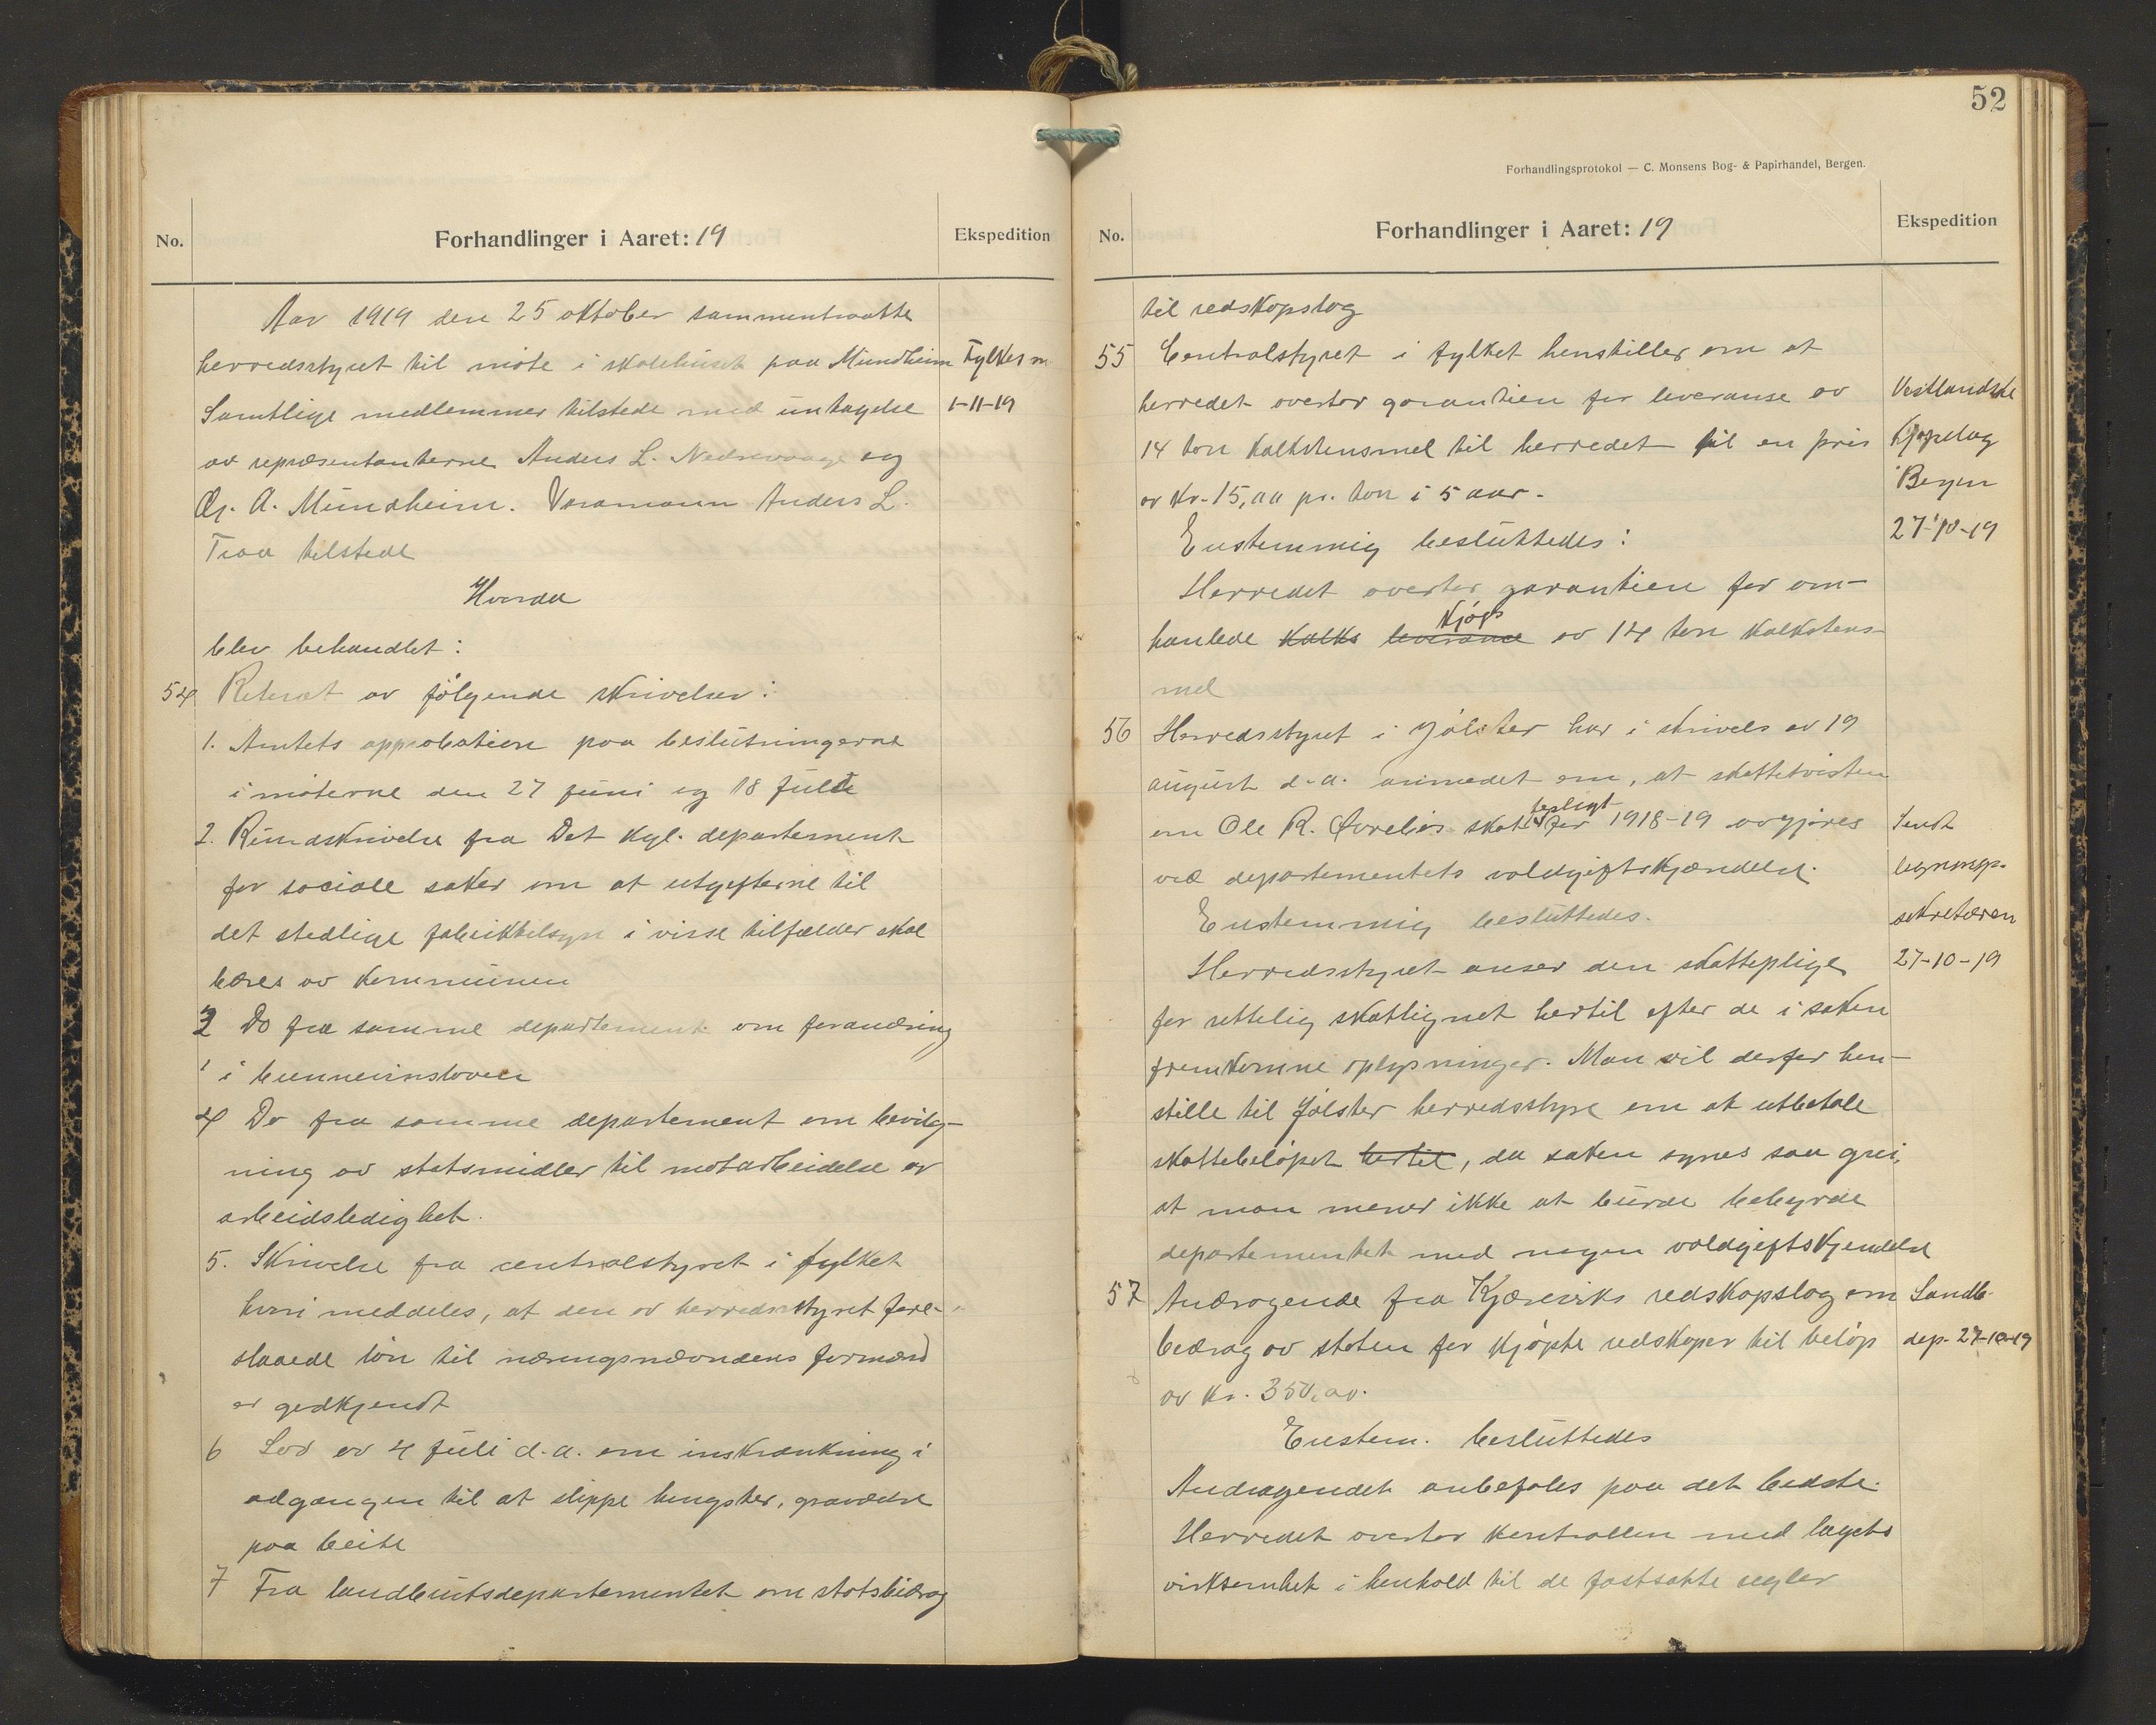 No.
Forhandlinger i Aaret: 19
Ekspedition
Aar 1919 den 25 oktober sammentraatte
herredsstyret til møte i skolehuset paa Mundheim
Fylkesm
Samtlige medlemmer tilstede med undtagelse
1-11-19
av repræsentanterne Anders L. Nedrevaage og
A. Mundheim. Varamann Anders L.
Traa tilstede
Hvorda
blev behandlet:
54 Referat av følgende skrivelser:
1. Amtets approbation paa beslutningerne
i møterne den 27 juni og 18 juli
2. Rundskrivelse fra Det kgl. departement
for sociale saker om at utgifterne til
det stedlige fabriktilsyn i visse tilfælder skal
bæres av kommunen
3 Do fra samme departement om forandring
i
4 Do fra samme departement om bevilg-
ning av statsmidler til motarbeidelse av
arbeidsledighet.
5. Skrivelse fra centralstyret i fylket
hvori meddeles, at den av herredsstyret fore-
slaaede løn til næringsnævndens formand
er godkjendt
6 Lov av 4 juli d.a. om inskrænkning i
adgangen til at slippe hengster,
paa beite
7 Fra landbruksdepartementet om statsbidrag
52
Forhandlingsprotokol — C. Monsens Bog- & Papirhandel, Bergen.
No.
Forhandlinger i Aaret: 19
Ekspedition
til redskapslog
55 Centralstyret i fylket henstiller om at
herredet overtar garantien for leveranse av
14 ton kalkstensmel til herredet til en pris
av kr. 15,00 pr. ton i 5 aar.
Vestlandske
Kjøpelag
Bergen
27-10-19
Enstemmig besluttedes:
Herredet overtar garantien for om-
kjøp
hanlede kalks leveranse av 14 ton kalkstens-
mel
56 Herredsstyret i Jølster har i skrivels av 19
august d.a. anmodet om, at skattetvisten
pligt
om Ole R. Øvrebøs skatte for 1918-19 avgjøres
ved departementets voldgiftskjændelse.
Sendt
ligningsp.
sekretæren
27-10-19
Enstemmig besluttedes.
Herredsstyret anser den skattepligt
for rettelig skatlignet hertil efter de i saken
fremkomne oplysninger. Man vil derfor hen-
stille til Jølster herredsstyre om at utbetale
skattebeløpet hertil, da saken synes saa grei,
at man mener ikke at burde bebyrde
departementet med nogen voldgiftskjendelse
57 Andragende fra Kjærviks redskapslog om
bidrag av staten for kjøpte redskaper til beløp
av kr. 350,00.
Landb.
dep. 27-10-19
Enstem. besluttedes
Andragendet anbefales paa det bedste.
Herredet overtar kontrollen med lagets
virksomhet i henhold til de fastsatte regler